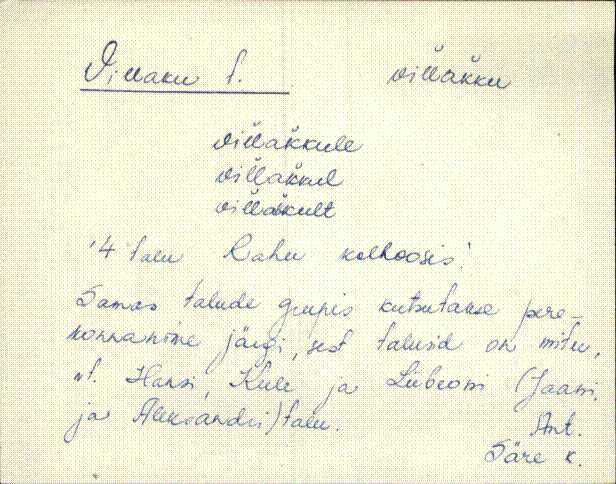 Villaku t. villakku
villakkule
villakkul
villakult
'4 talu Rahu kolhoosis'.
Samas talude grupis kutsutakse pere-
konnanime järgi, sest talusid on mitu,
n. t. Hansi, Kule ja Liibeoni (Jaani
ja Aleksandri) talu.
Ant.
Säre k.